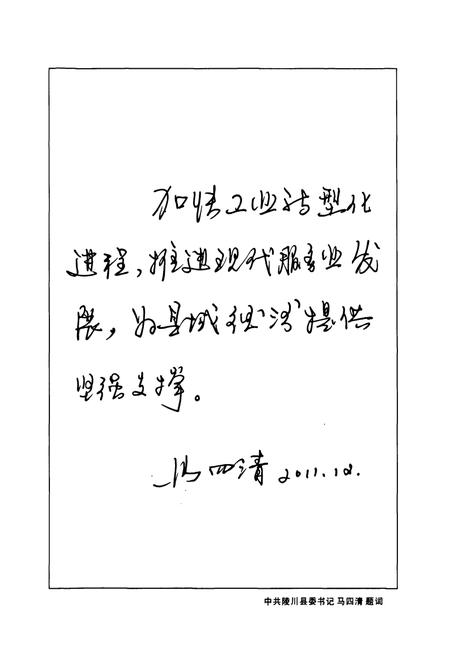 加快工业转型化
进程，推进现代服务业发
展，为县域经济提供
坚强支撑。
马四清 2011.12.
中共陵川县委书记 马四清 题词